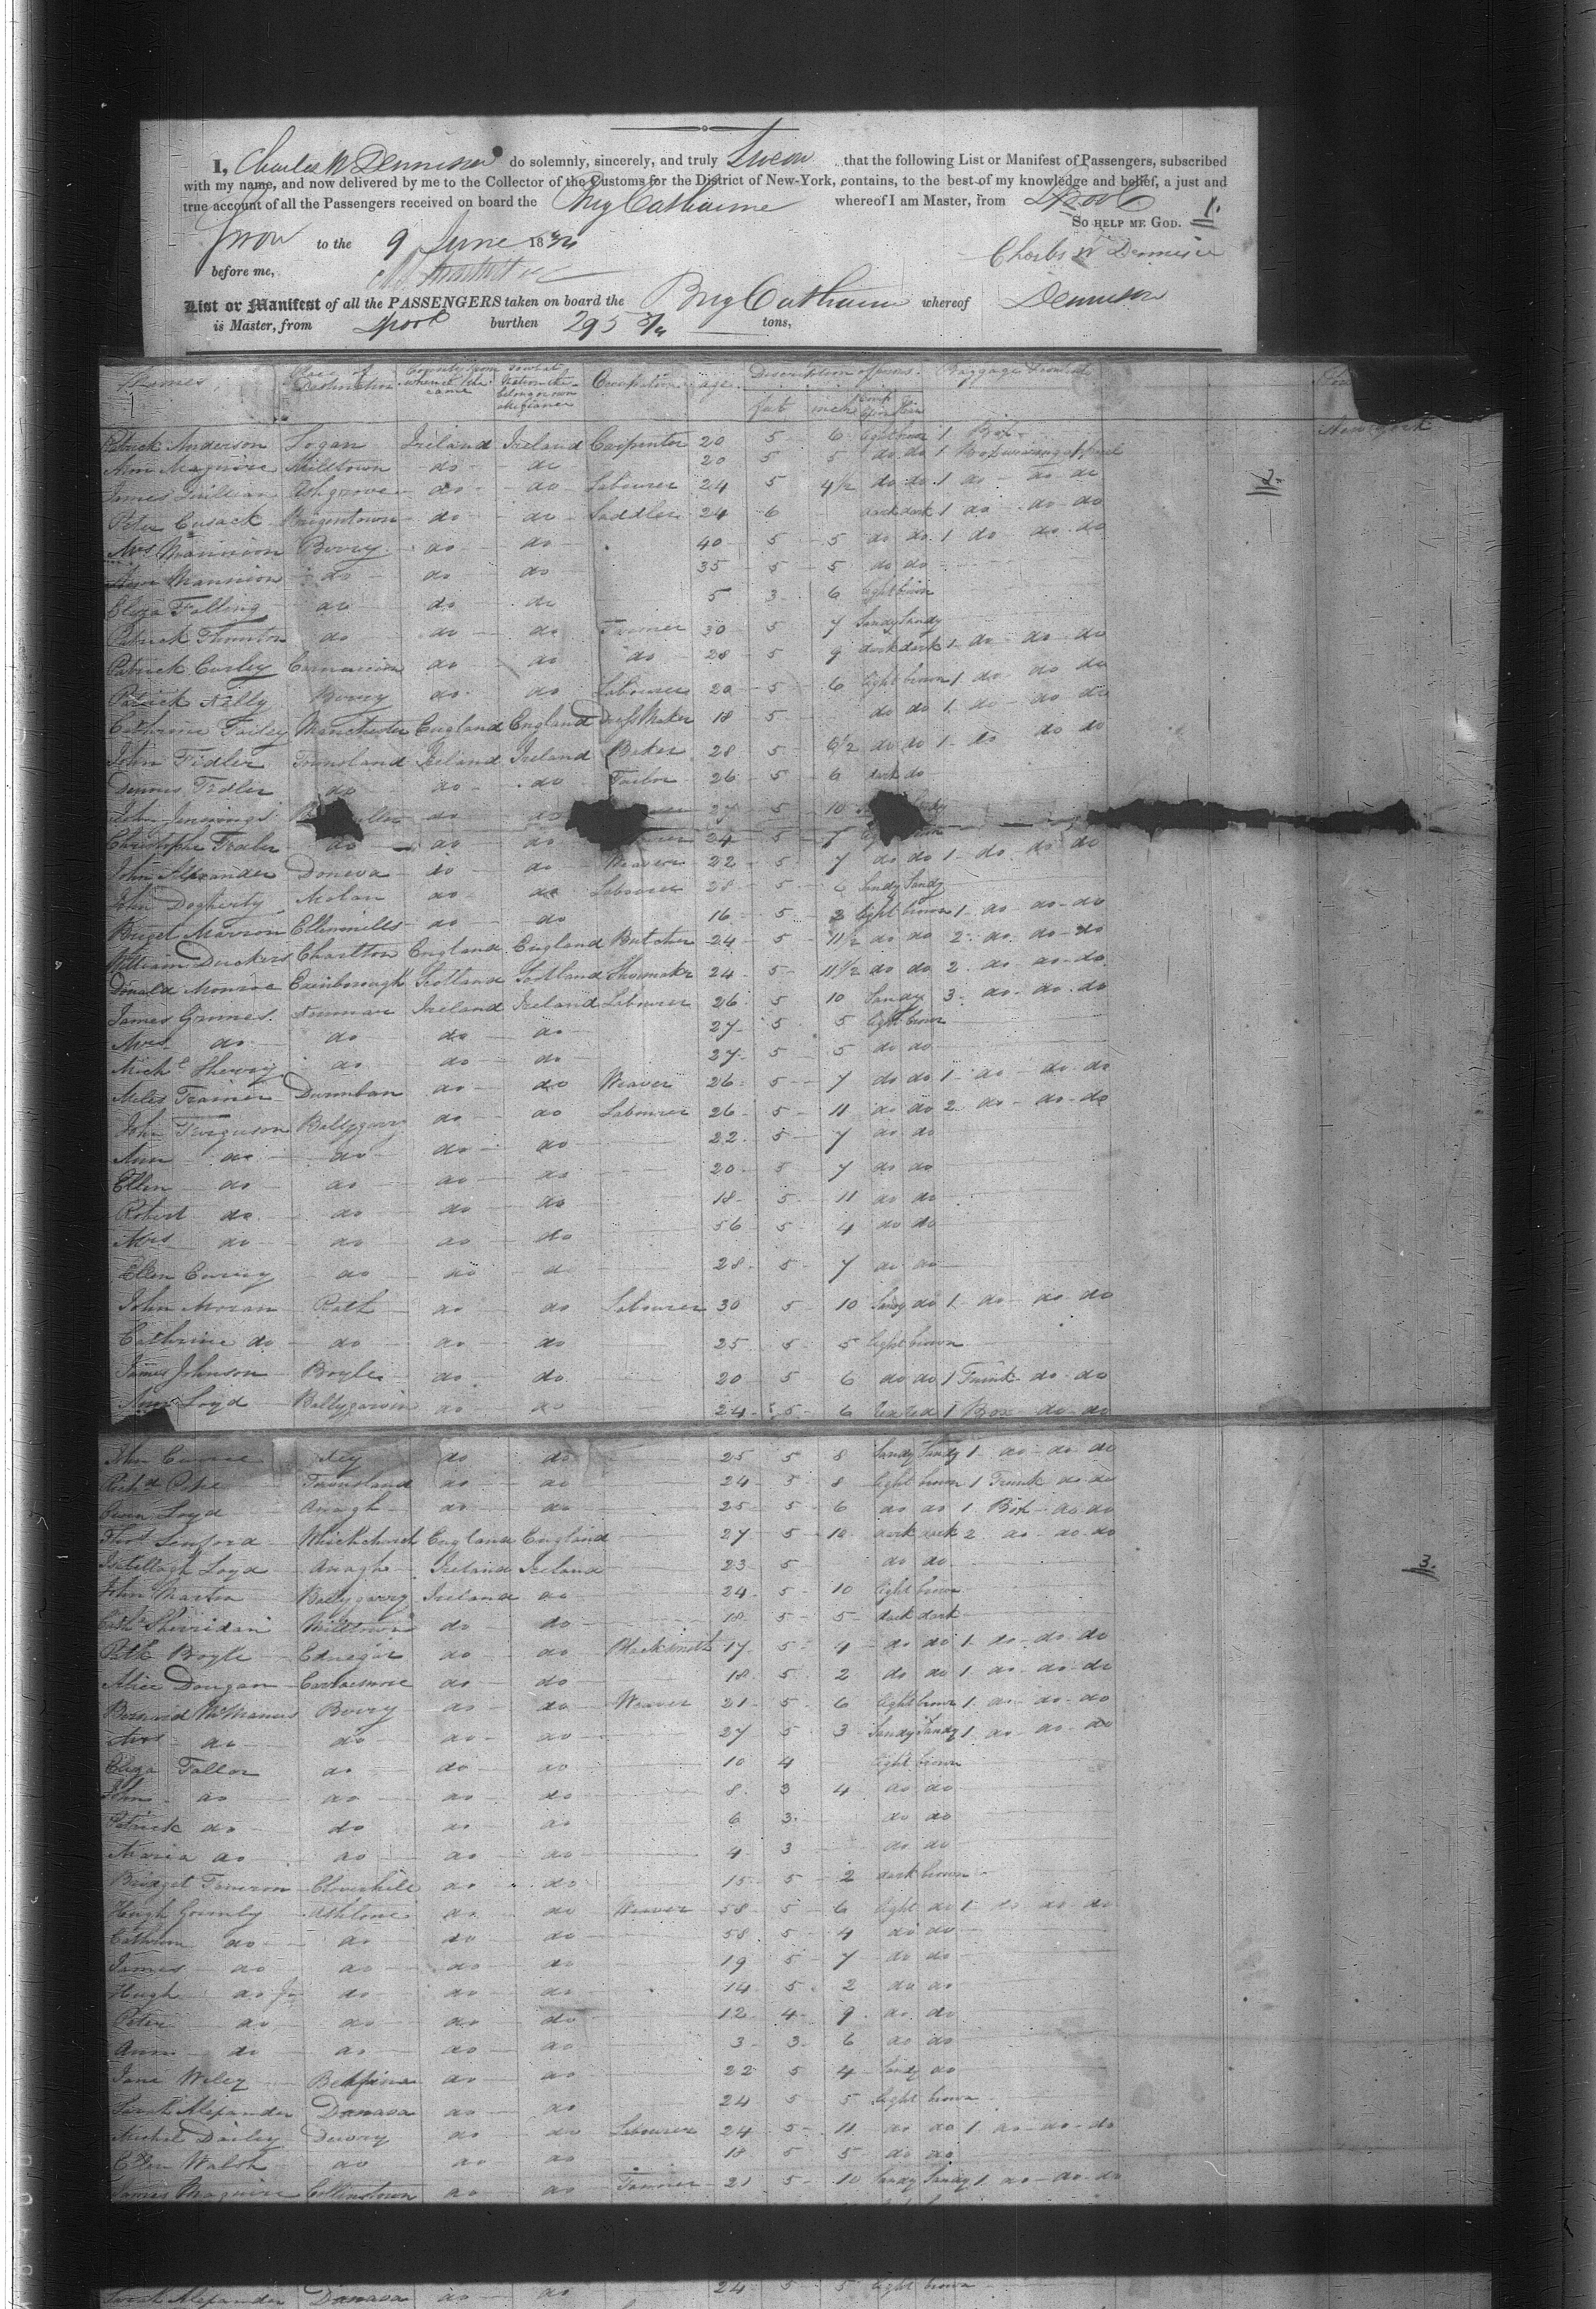 I, Charles W Dennison do solemnly, sincerely, and truly Swear that the following List or Manifest of Passengers, subscribed
with my name, and now delivered by me to the Collector of the Customs for the District of New-York, contains, to the best of my knowledge and belief, a just and
true account of all the Passengers received on board the Brig Catharine whereof I am Master, from Lpool
So help me God. 1.
Sworn to the 9 June 18
Charles W Dennison
before me,
List or Manifest of all the PASSENGERS taken on board the Brig Catharine whereof Dennison
is Master, from Lpool burthen 295 tons,
Names Place of Destination Country from whence they came Occupation age Description of persons Baggage
feet inch
New York
Patrick Anderson Logan Ireland Ireland Carpenter 20 5 6 light brown 1 Box
Ann Maguire Milltown do do 20 5 5 do do 1 Box wearing apparel
James Ashgrove do do Labourer 24 5 4½ do do 1 do do do
2.
Peter Cusack do do Saddler 24 6 dark dark 1 do do do
Mrs Mannion Berry do do 40 5 5 do do 1 do do do
Mannion do do do 35 5 5 do do
Eliza Falling do do do 5 3 6 light brown
Patrick Thornton do do do Farmer 30 5 7 Sandy Sandy
Patrick Curley do do do 28 5 9 dark dark 1 do do do
Patrick Nelly Berry do do Labourer 20 5 6 light brown 1 do do do
Catherine Failey Manchester England England Dress Maker 18 5 do do 1 do do do
John Fidler Townsland Ireland Ireland Baker 28 5 6½ do do 1 do do do
Dennis Fidler do do do Tailor 26 5 6 dark do
John Jennings do do 27 5 10
Christophe do do do 24 5
John Alexander Doneva do do Weaver 22 5 7 do do 1 do do do
John Dogherty Molan do do Labourer 28 5 6 Sandy Sandy
Briget Marron Ellenmills do do 16 5 2 light brown 1 do do do
William Duckers Charlton England England Butcher 24 5 11½ do do 2 do do do
Donald Monroe Edinborough Scotland Scotland Shoemaker 24 5 11½ do do 2 do do do
James Grimes Ireland Ireland Labourer 26 5 10 Sandy 3 do do do
Mrs do do do do 27 5 5 light brown
Mich Sherry do do do 27 5 5 do do
Miles Trainer Dunnban do do Weaver 26 5 7 do do 1 do do do
John Ferguson Ballygarry do do Labourer 26 5 11 do do 2 do do do
Ann do do do do 22 5 7 do do
Ellen do do do do 20 5 7 do do
Robert do do do do 18 5 11 do do
Mrs do do do do 56 5 4 do do
Ellen Curry do do do 28 5 7 do do
John Moran Rath do do Labourer 30 5 10 Sandy do 1 do do do
Catherine do do do do 25 5 5 light brown
James Johnson Boyle do do 20 5 6 do do 1 Trunk do do
Ann Loyd Ballygarvin do do 24 5 6 red red 1 Box do do
John do do 25 5 8 Sandy Sandy 1 do do do
Richd Pope Townsland do do 24 5 8 light brown 1 Trunk do do
Owen Loyd Anagh do do 25 5 6 do do 1 Box do do
Thos Linford Whichchurch England England 27 5 10 dark dark 2 do do do
Loyd Anagh Ireland Ireland 23 5 do do
3.
John Martin Ballygarry Ireland do 24 5 10 light brown
Cath Sherridan Milltown do do 18 5 5 dark dark
Patk Boyle do do Blacksmith 17 5 4 do do 1 do do do
Alice Dougan do do 18 5 2 do do 1 do do do
Bernard McManus Berry do do Weaver 21 5 6 light brown 1 do do do
Mrs do do do do 27 5 3 Sandy Sandy 1 do do do
Eliza Fallon do do do 10 4 light brown
John do do do do 8 3 4 do do
Patrick do do do do 6 3 do do
Maria do do do do 4 3 do do
Bridget Cloverhill do do 15 5 2 dark brown
Hugh Gormly Athlone do do Weaver 58 5 6 light do 1 do do do
Cathrine do do do do 58 5 4 do do
James do do do do 19 5 7 do do
Hugh do Jr do do do 14 5 2 do do
Peter do do do do 12 4 9 do do
Ann do do do do 3 3 6 do do
Jane Wiley do do 22 5 4 Sandy do
Sarah Alexander Danava do do 24 5 5 light brown
Michel Dailey do do Labourer 24 5 11 do do 1 do do do
Ellen Walsh do do do 18 5 5 do do
James Maguire Collinstown do do Farmer 21 5 10 Sandy Sandy 1 do do do
Sarah Alexander Danava do do 24 5 5 light brown